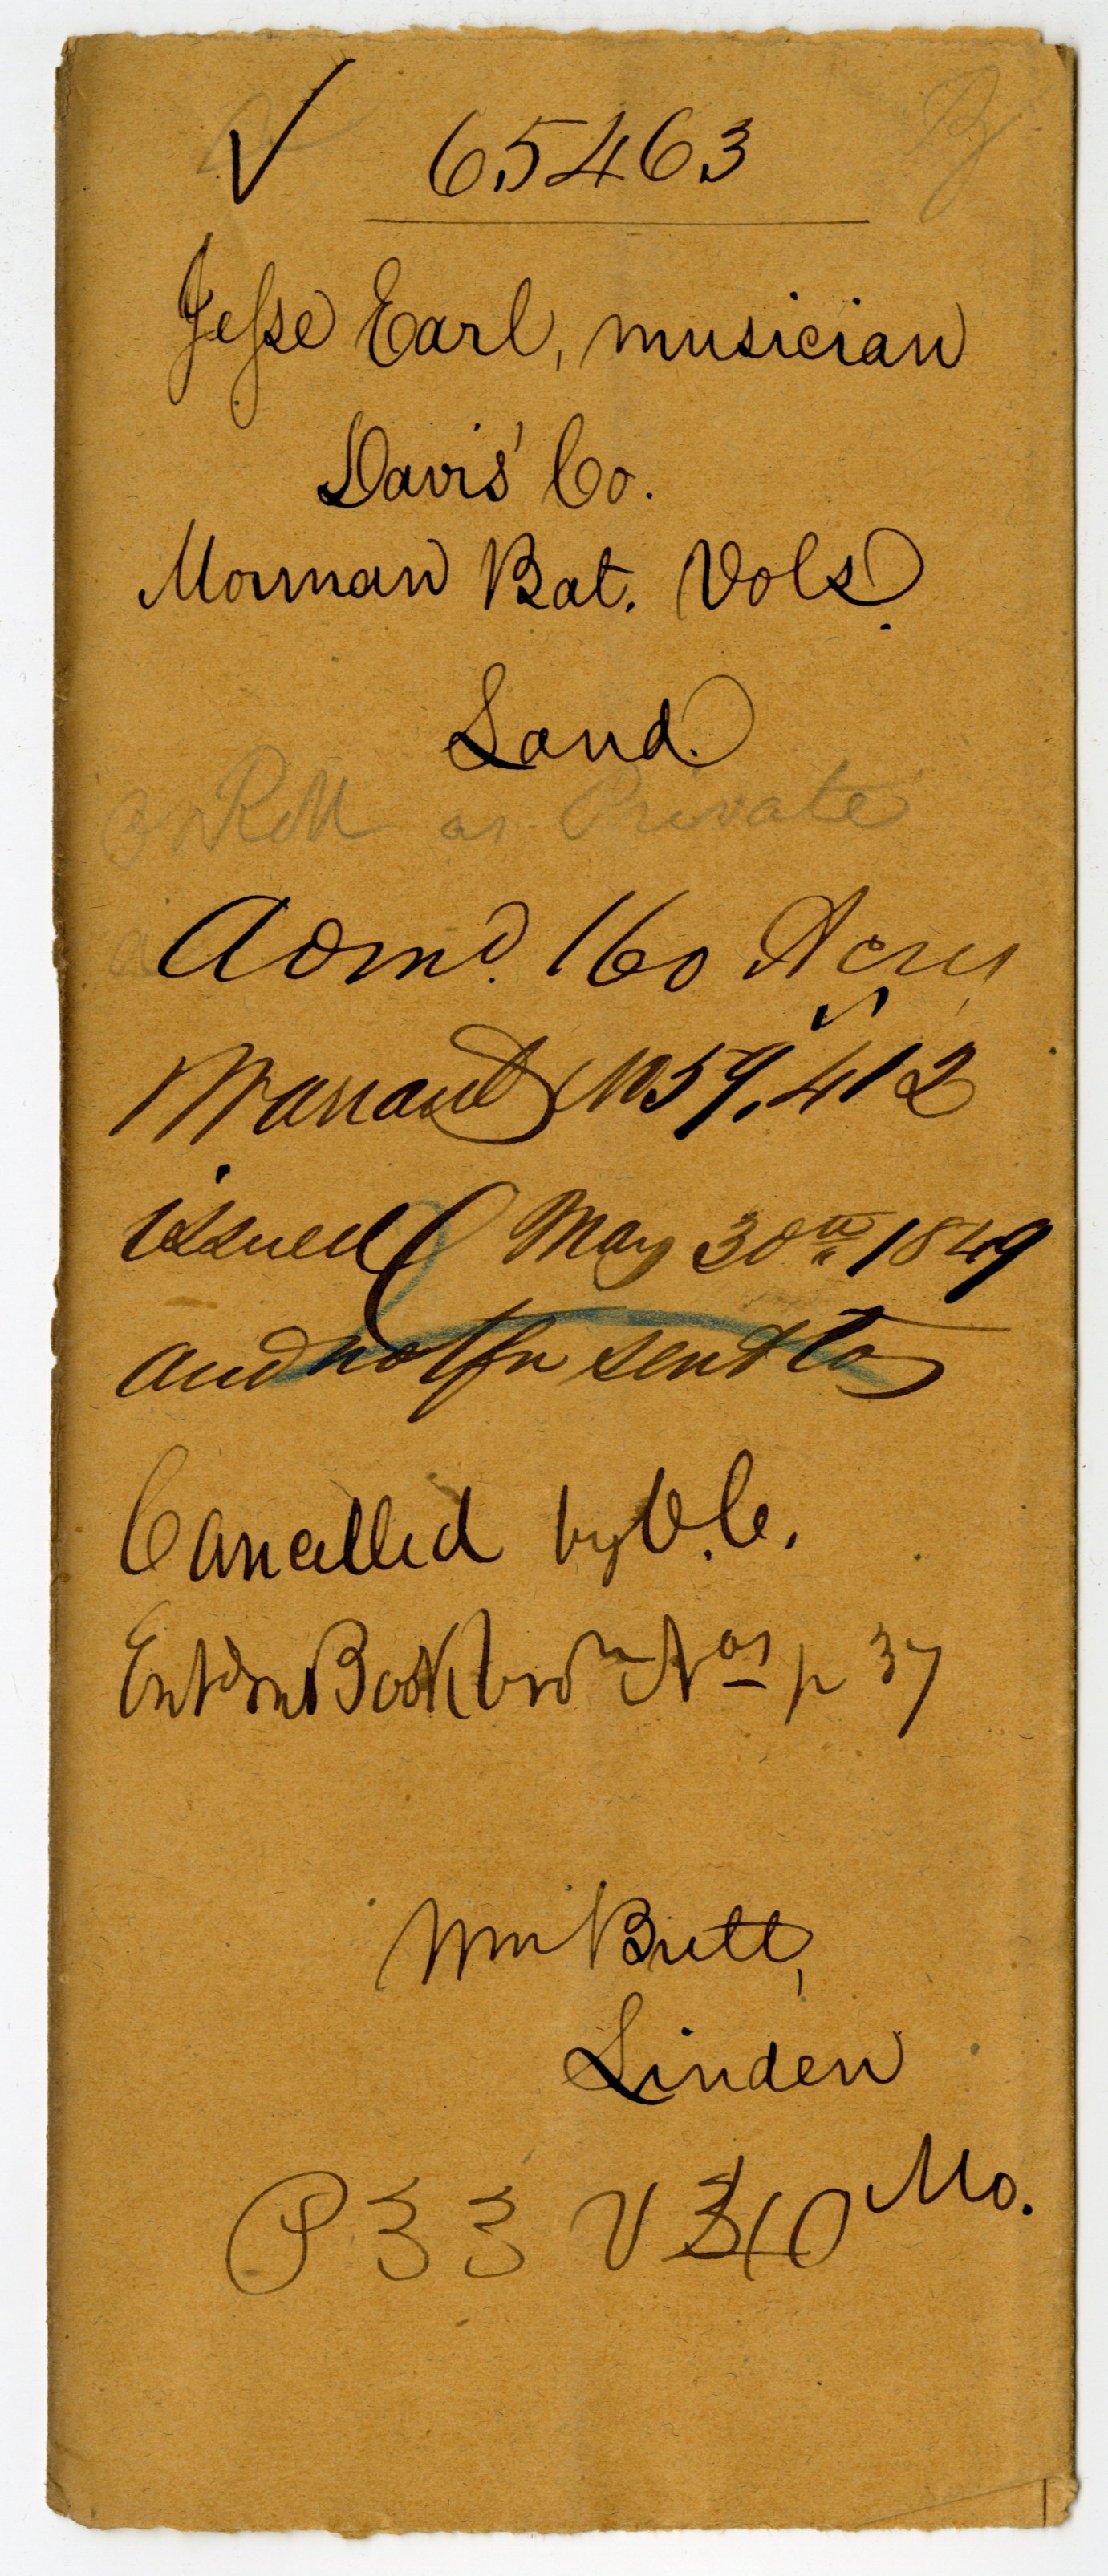 ✓ 65463
Jesse Earl, musician
Davis' Co.
Morman Bat. Vols.
Land.
on Roll as Private
Admd. 160 Acres
Warrant No 59,412
issued May 30th 1849
and notfn sent to
Cancelled by V.C.
Entd on Book Nos p 37
Wm Britt,
Linden
Mo.
P 33 V 310